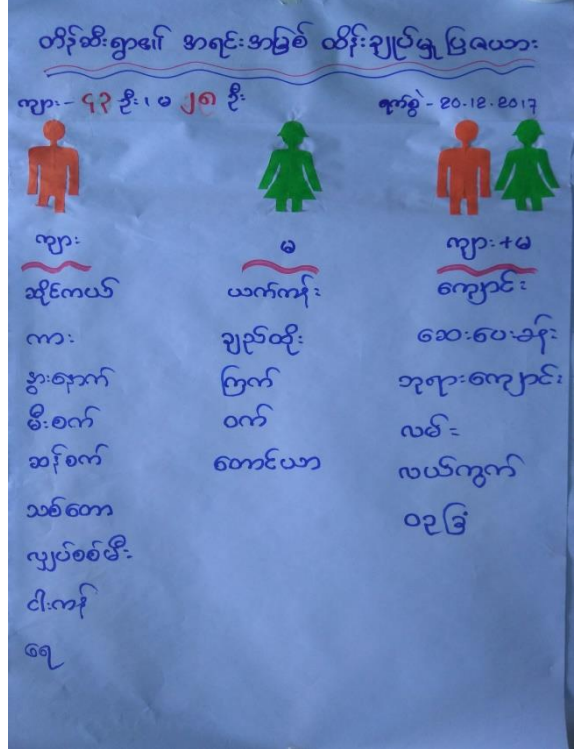 တိန်ဆီးရွာ၏ အရင်းအမြစ် ထိန်းချုပ်မှု ပြဇယား
ကျား - ၄၃ ဦး၊ မ ၂၈ ဦး ရက်စွဲ - 20.12.2017
ကျား
ဆိုင်ကယ်
ကား
နွားနောက်
မီးစက်
ဆန်စက်
သစ်တော
လျှပ်စစ်မီး
ငါးကန်
ရေ
မ
ယက်ကန်း
ချည်ထိုး
ကြက်
ဝက်
တောင်ယာ
ကျား+မ
ကျောင်း
ဆေးပေးခန်း
ဘုရားကျောင်း
လမ်း
လယ်ကွက်
ဝဥခြံ